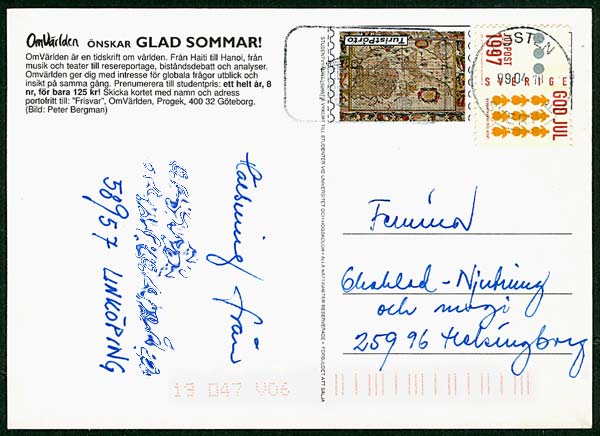 OmVärlden ÖNSKAR GLAD SOMMAR!
OmVärlden är en tidskrift om världen. Från Haiti till Hanoi, från
musik och teater till resereportage, biståndsdebatt och analyser.
OmVärlden ger dig med intresse för globala frågor utblick och
insikt på samma gång. Prenumerera till studentpris: ett helt år, 8
nr, för bara 125 kr! Skicka kortet med namn och adress
portofritt till: "Frisvar", OmVärlden, Progek, 400 32 Göteborg.
(Bild: Peter Bergman)
TuristPorto
JULPOST
1997
SVERIGE
GOD JUL
Hälsning/från
58957 LINKÖPING
Femina
Choklad-Njutning
och magi
259 96 Helsingborg
13 047 V06